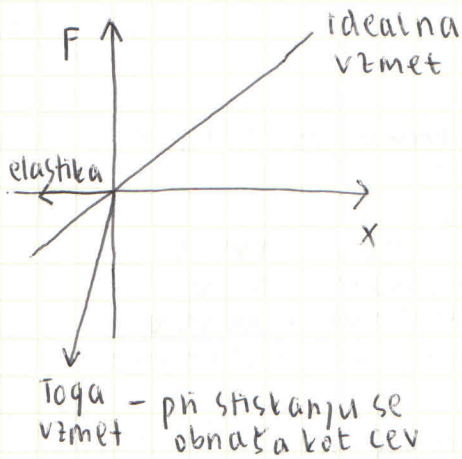 F
idealna
vzmet
elastika
x
Toga
vzmet
- pri stiskanju se
obnaša kot cev